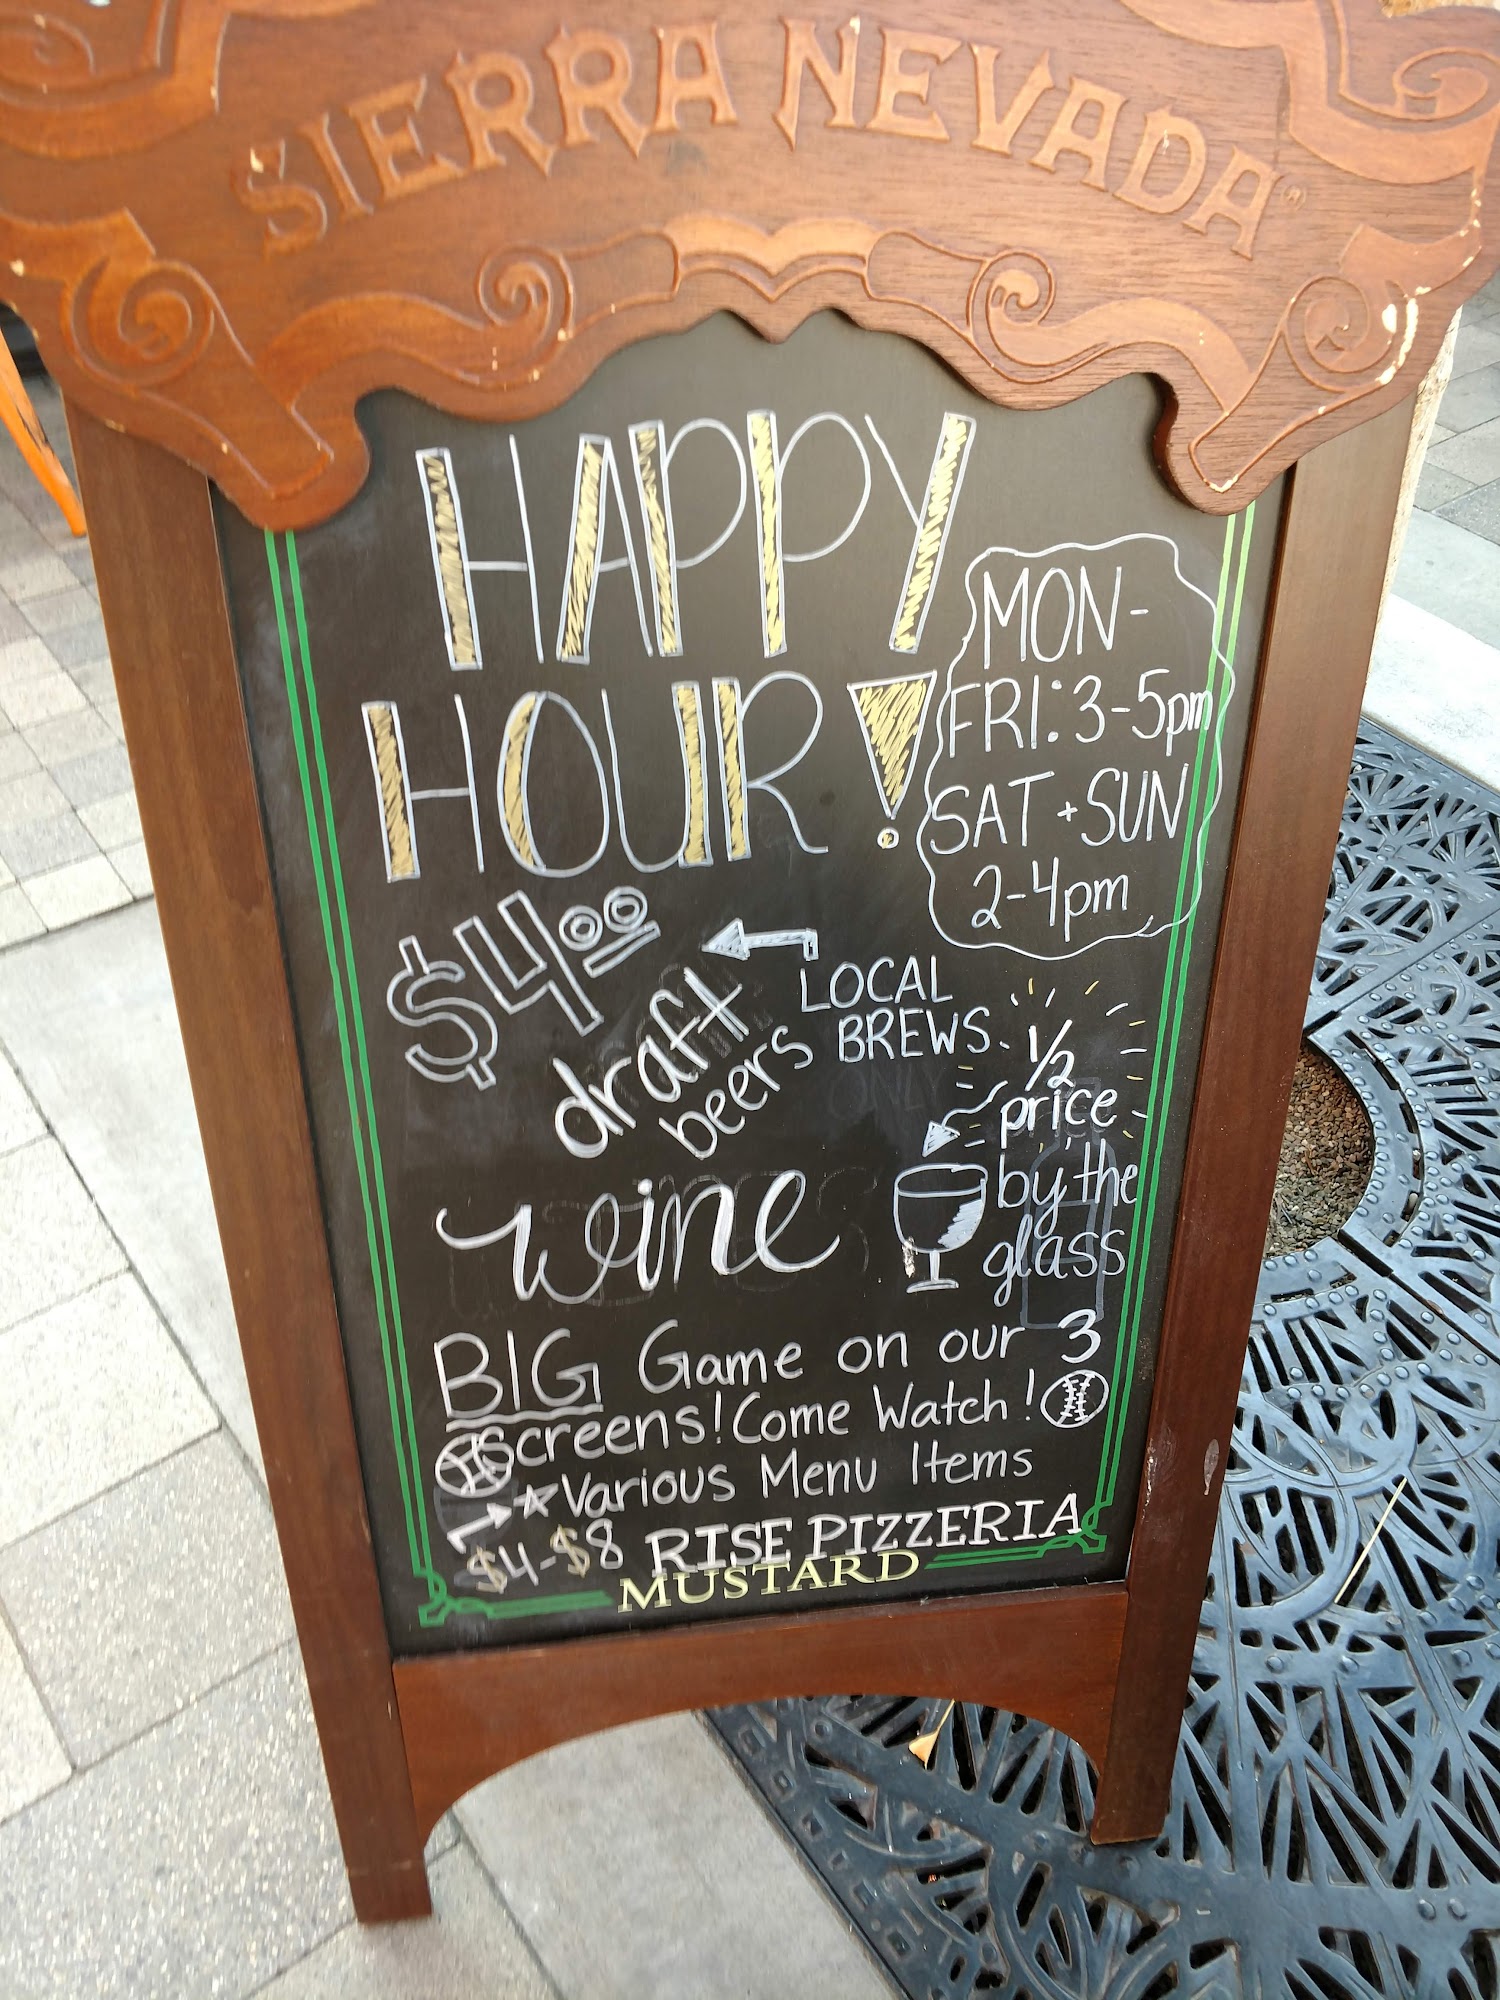 SIERRA NEVADA®
HAPPY
HOUR!
MON-
FRI: 3-5pm
SAT + SUN
2-4pm
$4.00
draft
beers
LOCAL
BREWS.
ONLY
wine
1/2
price
by the
glass
BIG Game on our 3
screens! Come Watch!
Various Menu Items
$4-$8 RISE PIZZERIA
MUSTARD